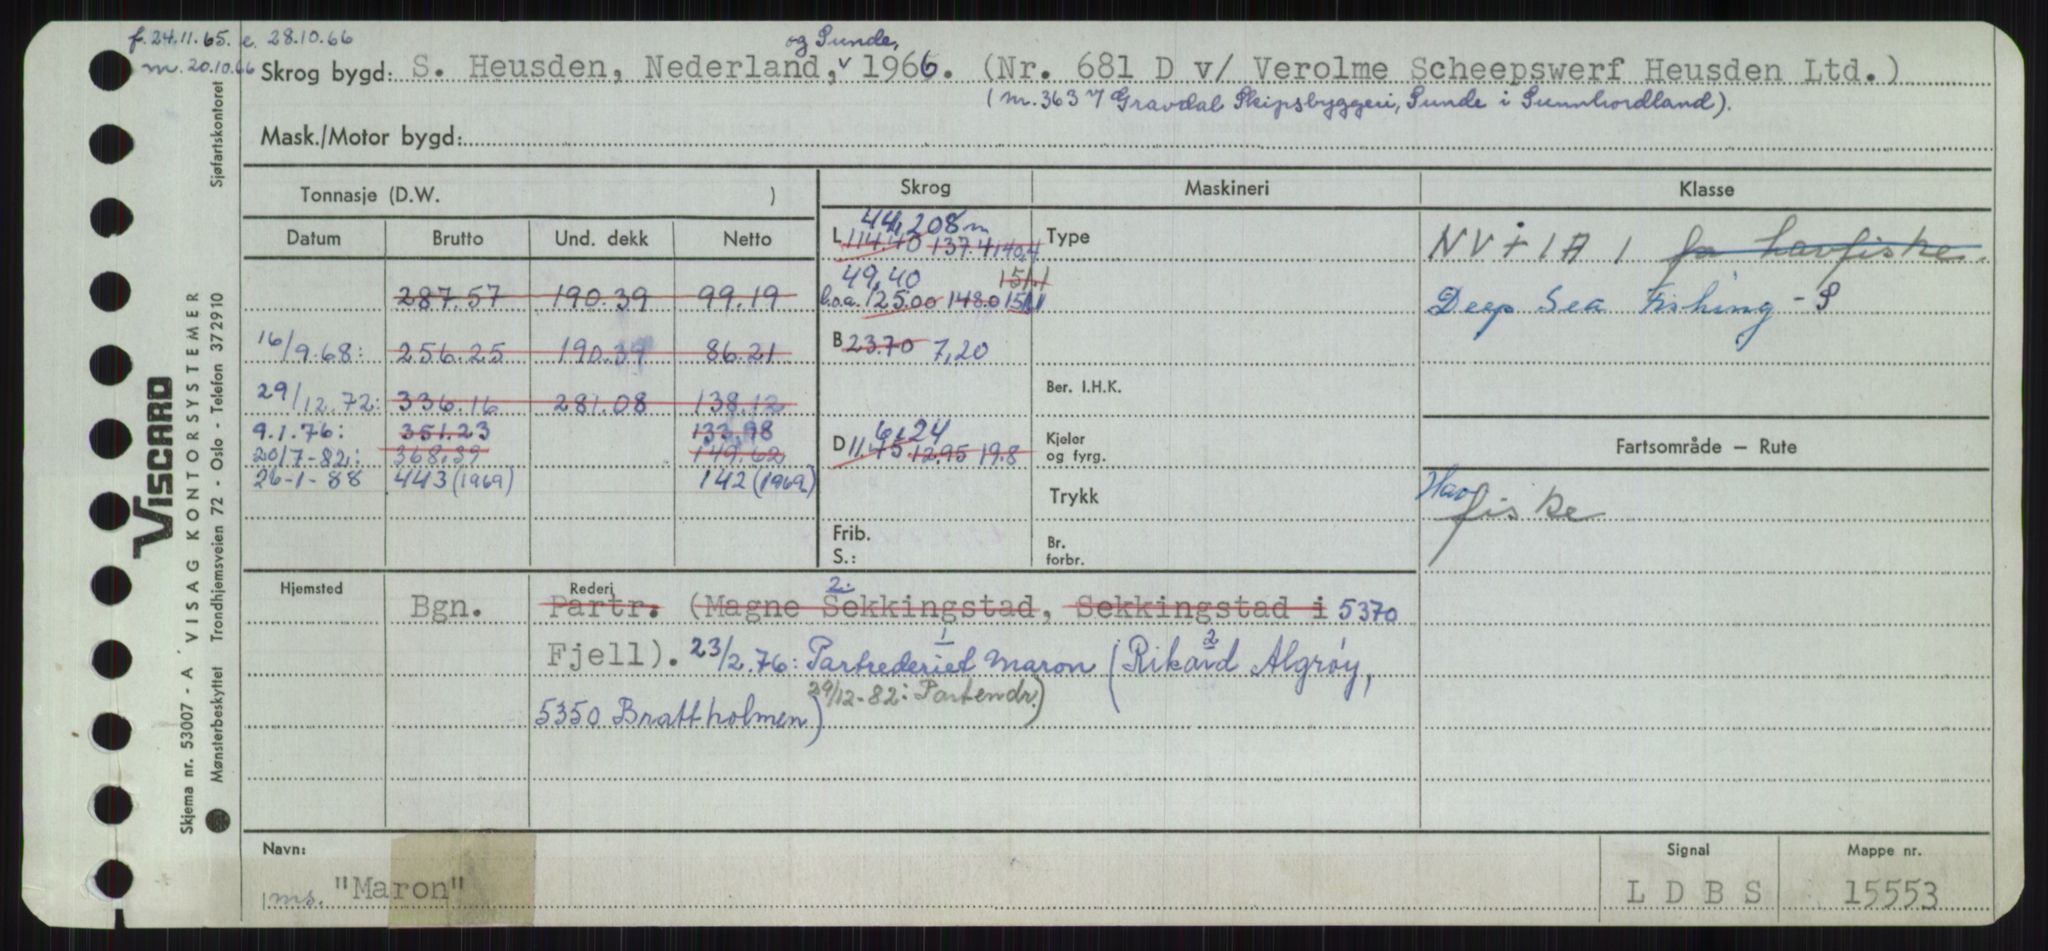 f. 24.11.65. e. 28.10.66
m. 20.10.66
og Sunde,
Skrog bygd: S. Heusden, Nederland, v 1966. (Nr. 681 D v/ Verolme Scheepswerf Heusden Ltd.)
(nr. 363 v/ Gravdal Skipsbyggeri, Sunde i Sunnhordland).
Mask./Motor bygd:
Tonnasje (D.W. ) Skrog Maskineri Klasse
Datum Brutto Und. dekk Netto
287.57 190.39 99.19
16/9.68: 256.25 190.39 86.21
29/12.72: 336.16 281.08 138.12
9.1.76: 351.23 133.98
20/7-82: 368.39 149.62
26-1-88 443 (1969) 142 (1969)
44,208 m
L 114.40 137.4 140,4
49,40 151,1
l.o.a. 125.00 148.0 151,1
B 23.70 7,20
6,24
D 11.75 12.95 19.8
Frib.
S.:
Type
Ber. I.H.K.
Kjeler
og fyrg.
Trykk
Br.
forbr.
NV + 1A 1 for havfiske.
Deep Sea Fishing - S
Fartsområde – Rute
Hav
fiske
Hjemsted Rederi 2.
Bgn. Partr. (Magne Sekkingstad, Sekkingstad i 5370
Fjell). 23/2.76: Partrederiet Maron (Rikard Algrøy,
1 2
29/12-82: Partendr.)
5350 Brattholmen)
Navn: Signal Mappe nr.
ms. "Maron" L D B S 15553
Skjema nr. 53007 - A VISAG KONTORSYSTEMER
VISCARD
Mønsterbeskyttet Trondhjemsveien 72 - Oslo - Telefon 372910 Sjøfartskontoret